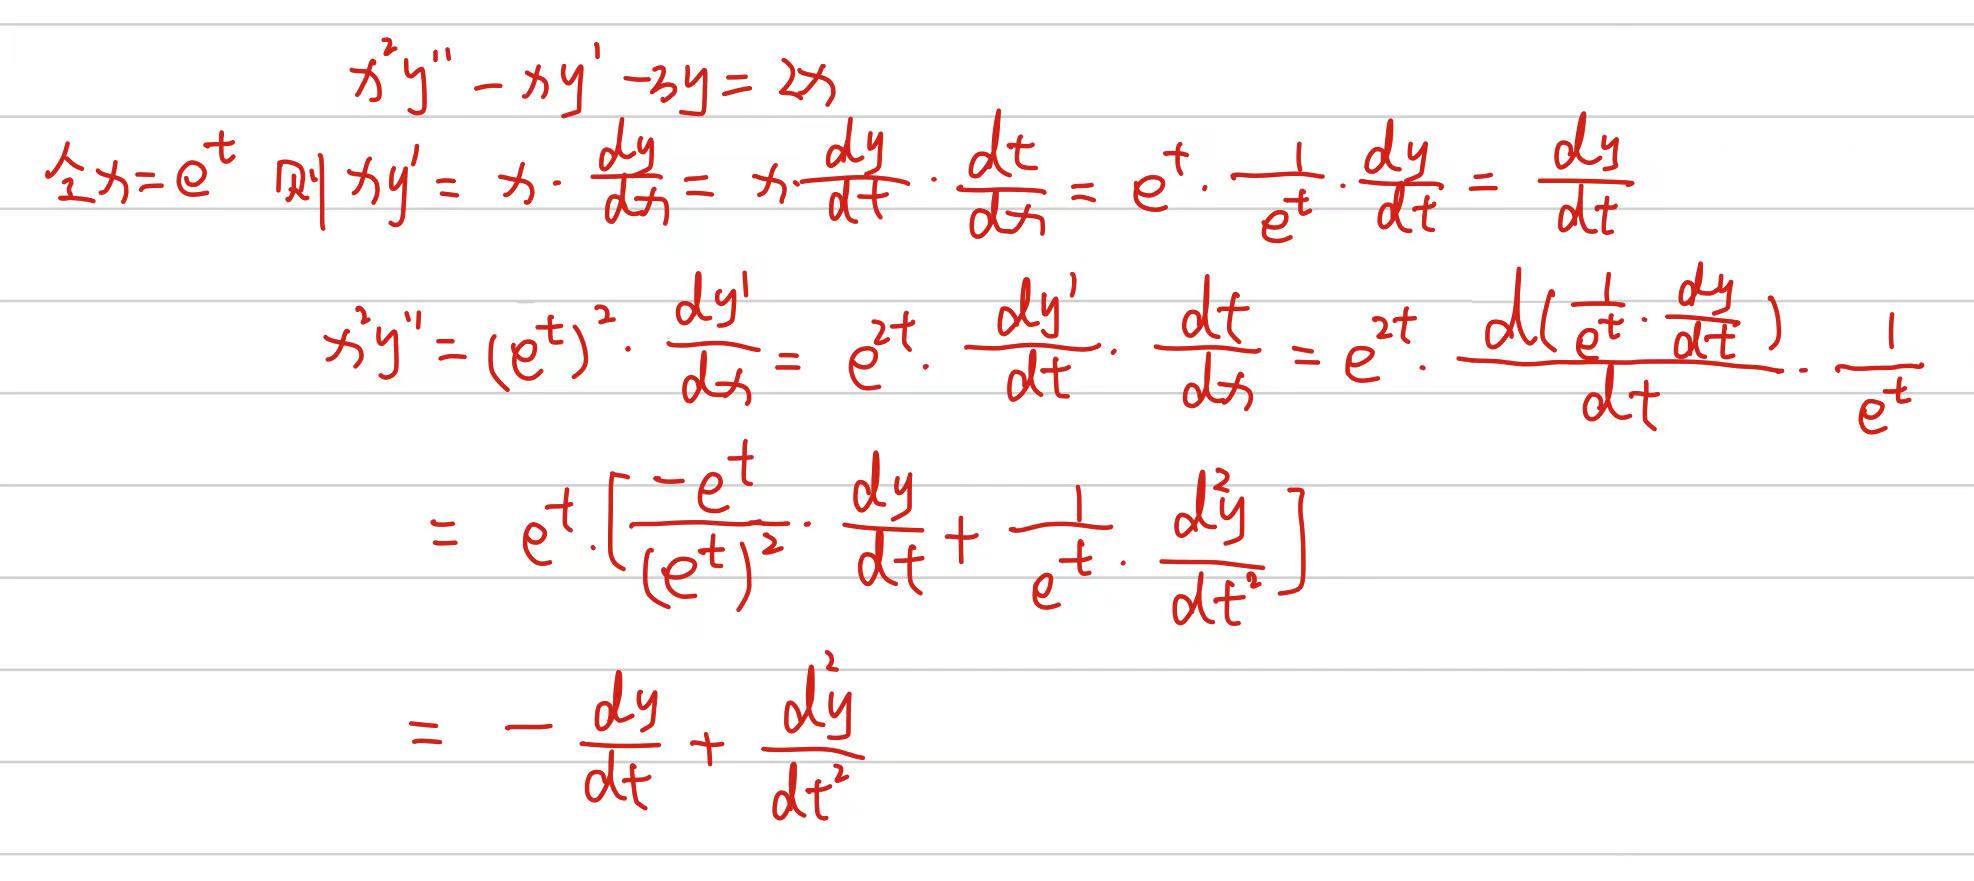 x²y'' - xy' - 3y = 2x
令x = e^t 则 xy' = x · dy/dx = x · dy/dt · dt/dx = e^t · 1/e^t · dy/dt = dy/dt
x²y'' = (e^t)² · dy'/dx = e^{2t} · dy'/dt · dt/dx = e^{2t} · d(1/e^t · dy/dt)/dt · 1/e^t
= e^t · [-e^t/(e^t)² · dy/dt + 1/e^t · d²y/dt²]
= - dy/dt + d²y/dt²